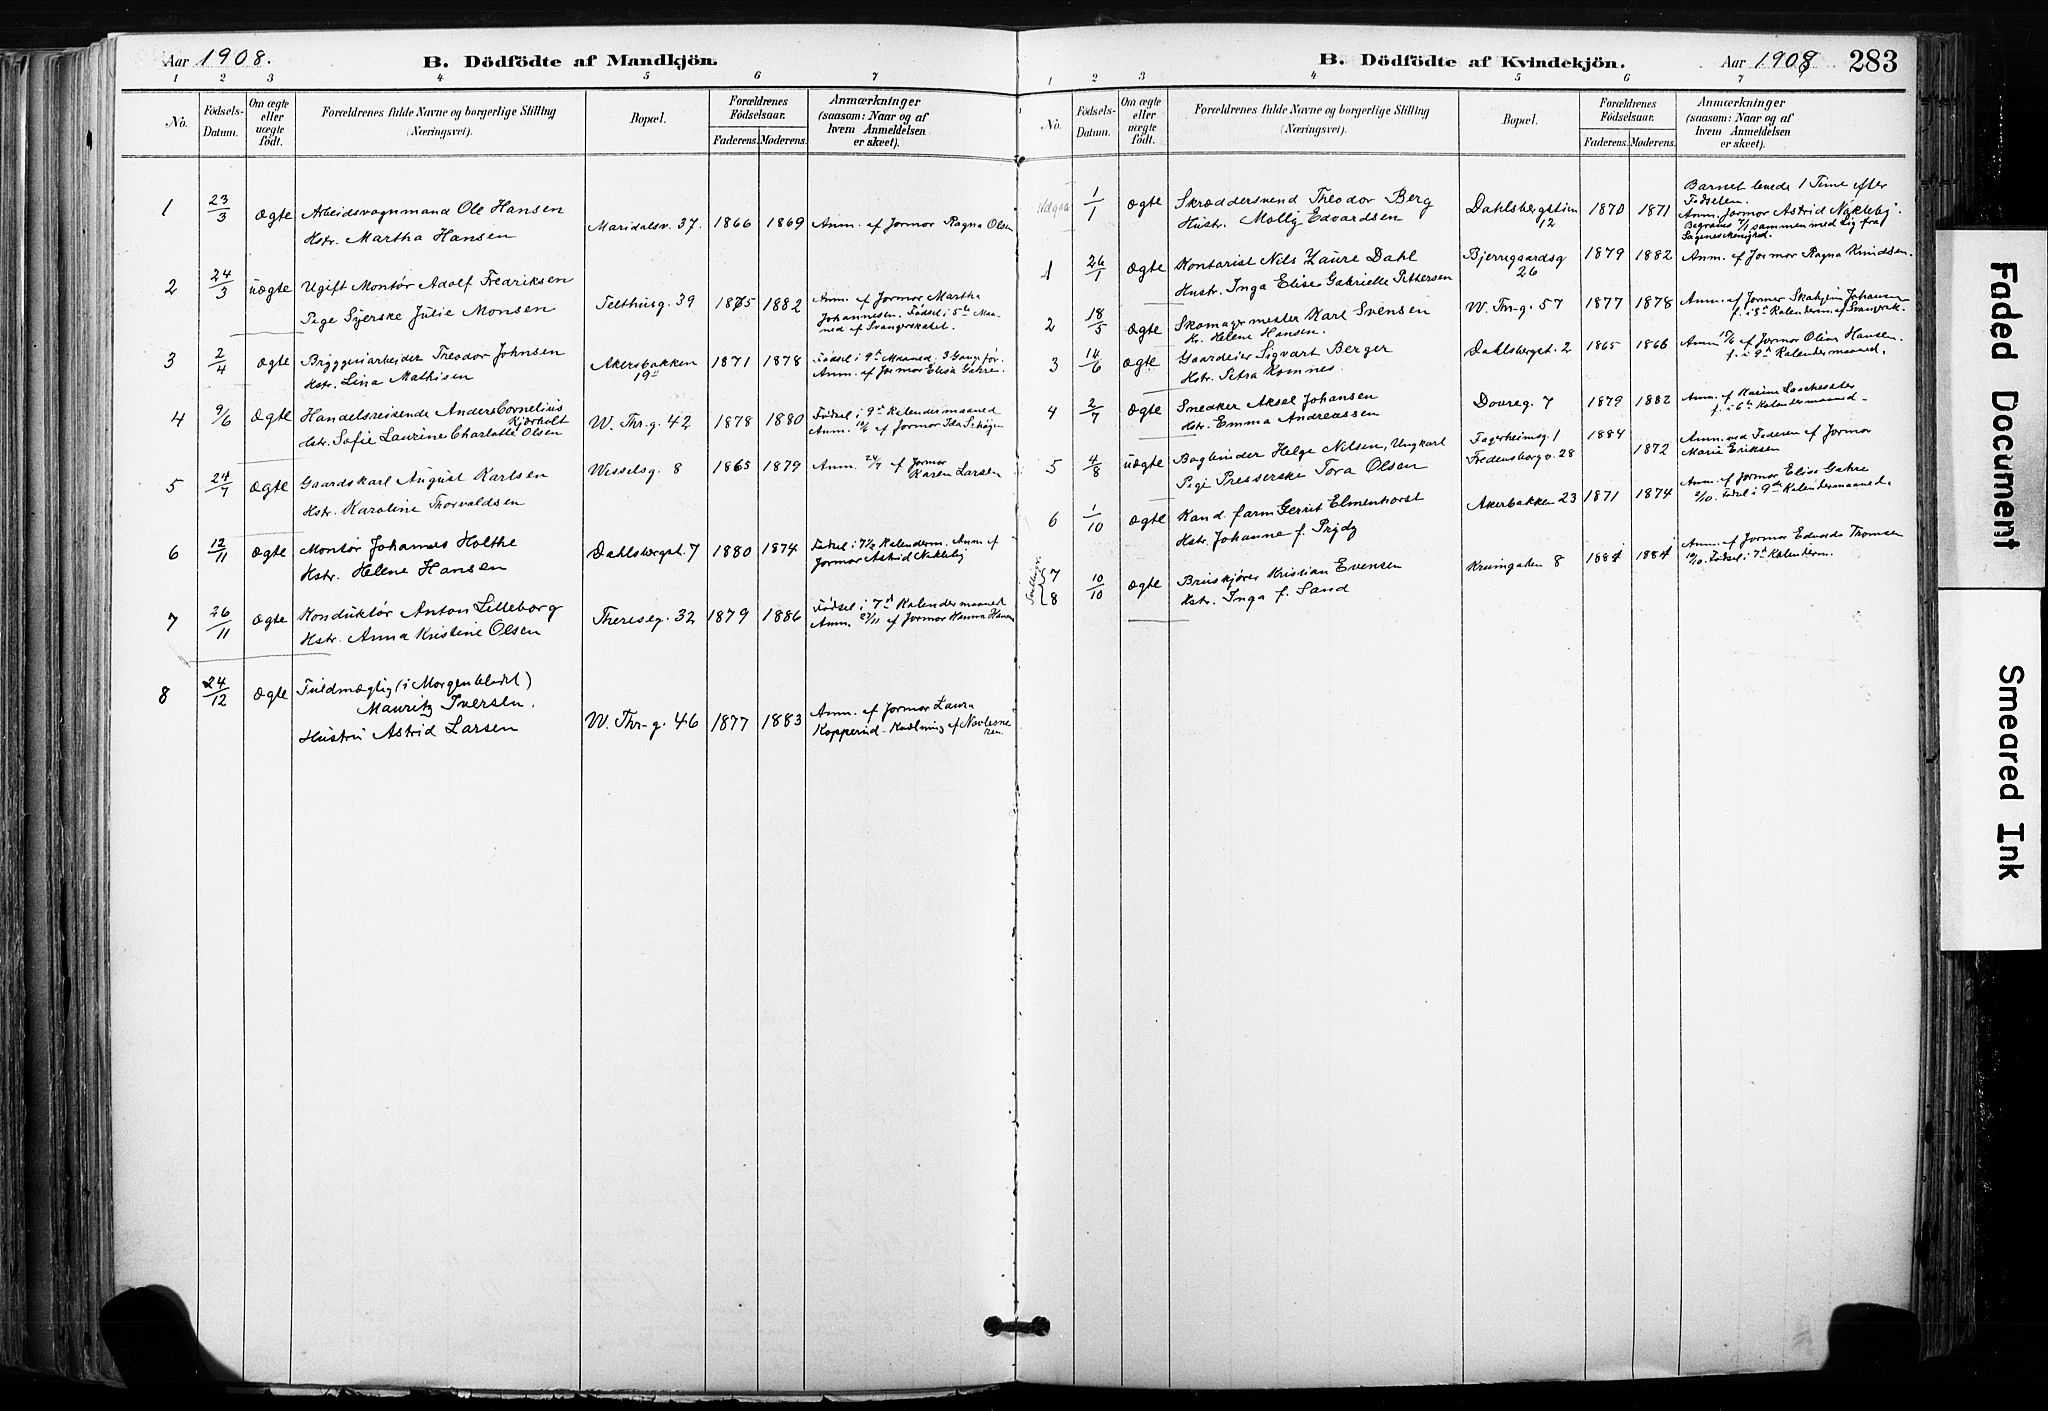 Aar 1908.
B. Dödfödte af Mandkjön.
1 2 3 4 5 6 7
No.
Födsels-Datum.
Om ægte eller uægte födt.
Forældrenes fulde Navne og borgerlige Stilling
(Næringsvei).
Bopæl.
Forældrenes Födselsaar.
Faderens. Moderens.
Anmærkninger
(saasom: Naar og af
hvem Anmeldelsen
er skeet).
1 23/3 Ægte Arbeidsvognmand Ole Hansen
Hstr. Martha Hansen Maridalsv. 37. 1866 1869 Anm. af Jormor Ragna Olsen
2 24/3 uægte Ugift Montør Adolf Fredriksen
Pige Syerske Julie Monsen Telthusg. 39 1875 1882 Anm. af Jormor Martha
Johannesen. Fødsel i 5te Maa-
ned af Svangerskabet.
3 2/4 Ægte Bryggeriarbeider Theodor Johnsen
Hstr. Lina Mathisen Akersbakken 19 1871 1878 Fødsel i 9de Maaned, 3 Gang før.
Anm. af Jormor Elise Gahre.
4 9/6 Ægte Handelsreisende Anders Cornelius
Kjörholt
Hstr. Sofie Laurine Charlotte Olsen W. Thr-g. 42 1878 1880 Fødsel i 9de Kalendermaaned
Anm. 10/6 af Jormor Ida
5 24/7 Ægte Gaardskarl August Karlsen
Hstr. Karoline Thorvaldsen Wesselsg. 8 1865 1879 Anm. 24/7 af Jormor
Karen Larsen
6 12/11 Ægte Montør Johannes Holthe
Hstr. Helene Hansen Dahlsbergst. 7 1880 1874 Fødsel i 7½ Kalenderm. Anm. af
Jormor Astrid Nakleby
7 26/11 Ægte Konduktør Anton Lilleborg
Hstr. Anna Kristine Olsen Theresesg. 32 1879 1886 Fødsel i 7de Kalendermaaned
Anm. 27/11 af Jormor Hanna Hansen
8 24/12 Ægte Fuldmægtig (i Morgenbladet)
Mauritz Iversen.
Hustru Astrid Larsen W. Thr-g. 46 1877 1883 Anm. af Jormor Laura
Kopperud - Kvælning af Navlesne
ren.
B. Dödfödte af Kvindekjön.
Aar 1908 283
1 2 3 4 5 6 7
No.
Födsels-Datum.
Om ægte eller uægte födt.
Forældrenes fulde Navne og borgerlige Stilling
(Næringsvei).
Bopæl.
Forældrenes Födselsaar.
Faderens. Moderens.
Anmærkninger
(saasom: Naar og af
hvem Anmeldelsen
er skeet).
Udgaar 1/1 Ægte Skræddersvend Theodor Berg
Hustr. Molly Edvardsen Dahlsbergstien
12 1870 1871 Barnet levede 1 Time efter
Fødselen.
Anm. Jormor Astrid Nakleby.
Begraves 7/1 sammen med Lig fra
Sagenes menighed.
1 26/1 Ægte Kontorist Nils Laure Dahl
Hustr. Inga Elise Gabrielle Pettersen Bjerregaardsg
26 1879 1882 Anm. af Jormor Ragna Knudsen.
2 18/5 Ægte Skomagermester Karl Svensen
H. Helene Hansen. W. Thr-g. 57 1877 1878 Anm. af Jormor Johansen
f. i 5te Kalenderm. af Svangersk.
3 14/6 Ægte Gaardeier Sigvart Berger
Hstr. Petra Komnes. Dahlsbergst. 2 1865 1866 Anm. 15/6 af Jormor Oline Hansen.
f. i 9de Kalendermaaned.
4 2/7 Ægte Snedker Aksel Johansen
Hstr. Emma Andreassen Dovreg. 7 1879 1882 Anm. af
f. i 6te Kalendermaaned
5 4/8 uægte Bogbinder Helge Nilsen, Ungkarl
Pige Presserske Tora Olsen Fagerheimsg. 1
Fredensborgv. 28 1884 1872 Anm. ved Faderen af Jormor
Marie Eriksen
6 1/10 Ægte Kand. farm Gerrit Elmenhorst
Hstr. Johanne f. Prydz Akersbakken 23 1871 1874 Anm. af Jormor Elise Gahre
2/10. Fødsel i 9de Kalendermaaned.
Tvillinger 7
8 10/10 Ægte Bruskjører Kristian Evensen
Hstr. Inga f. Sand Krumgaten 8 1884 1884 Anm. af Jormor Edvarda Thomsen
10/10. Fødsel i 7de Kalenderm.
Faded Document
Smeared Ink